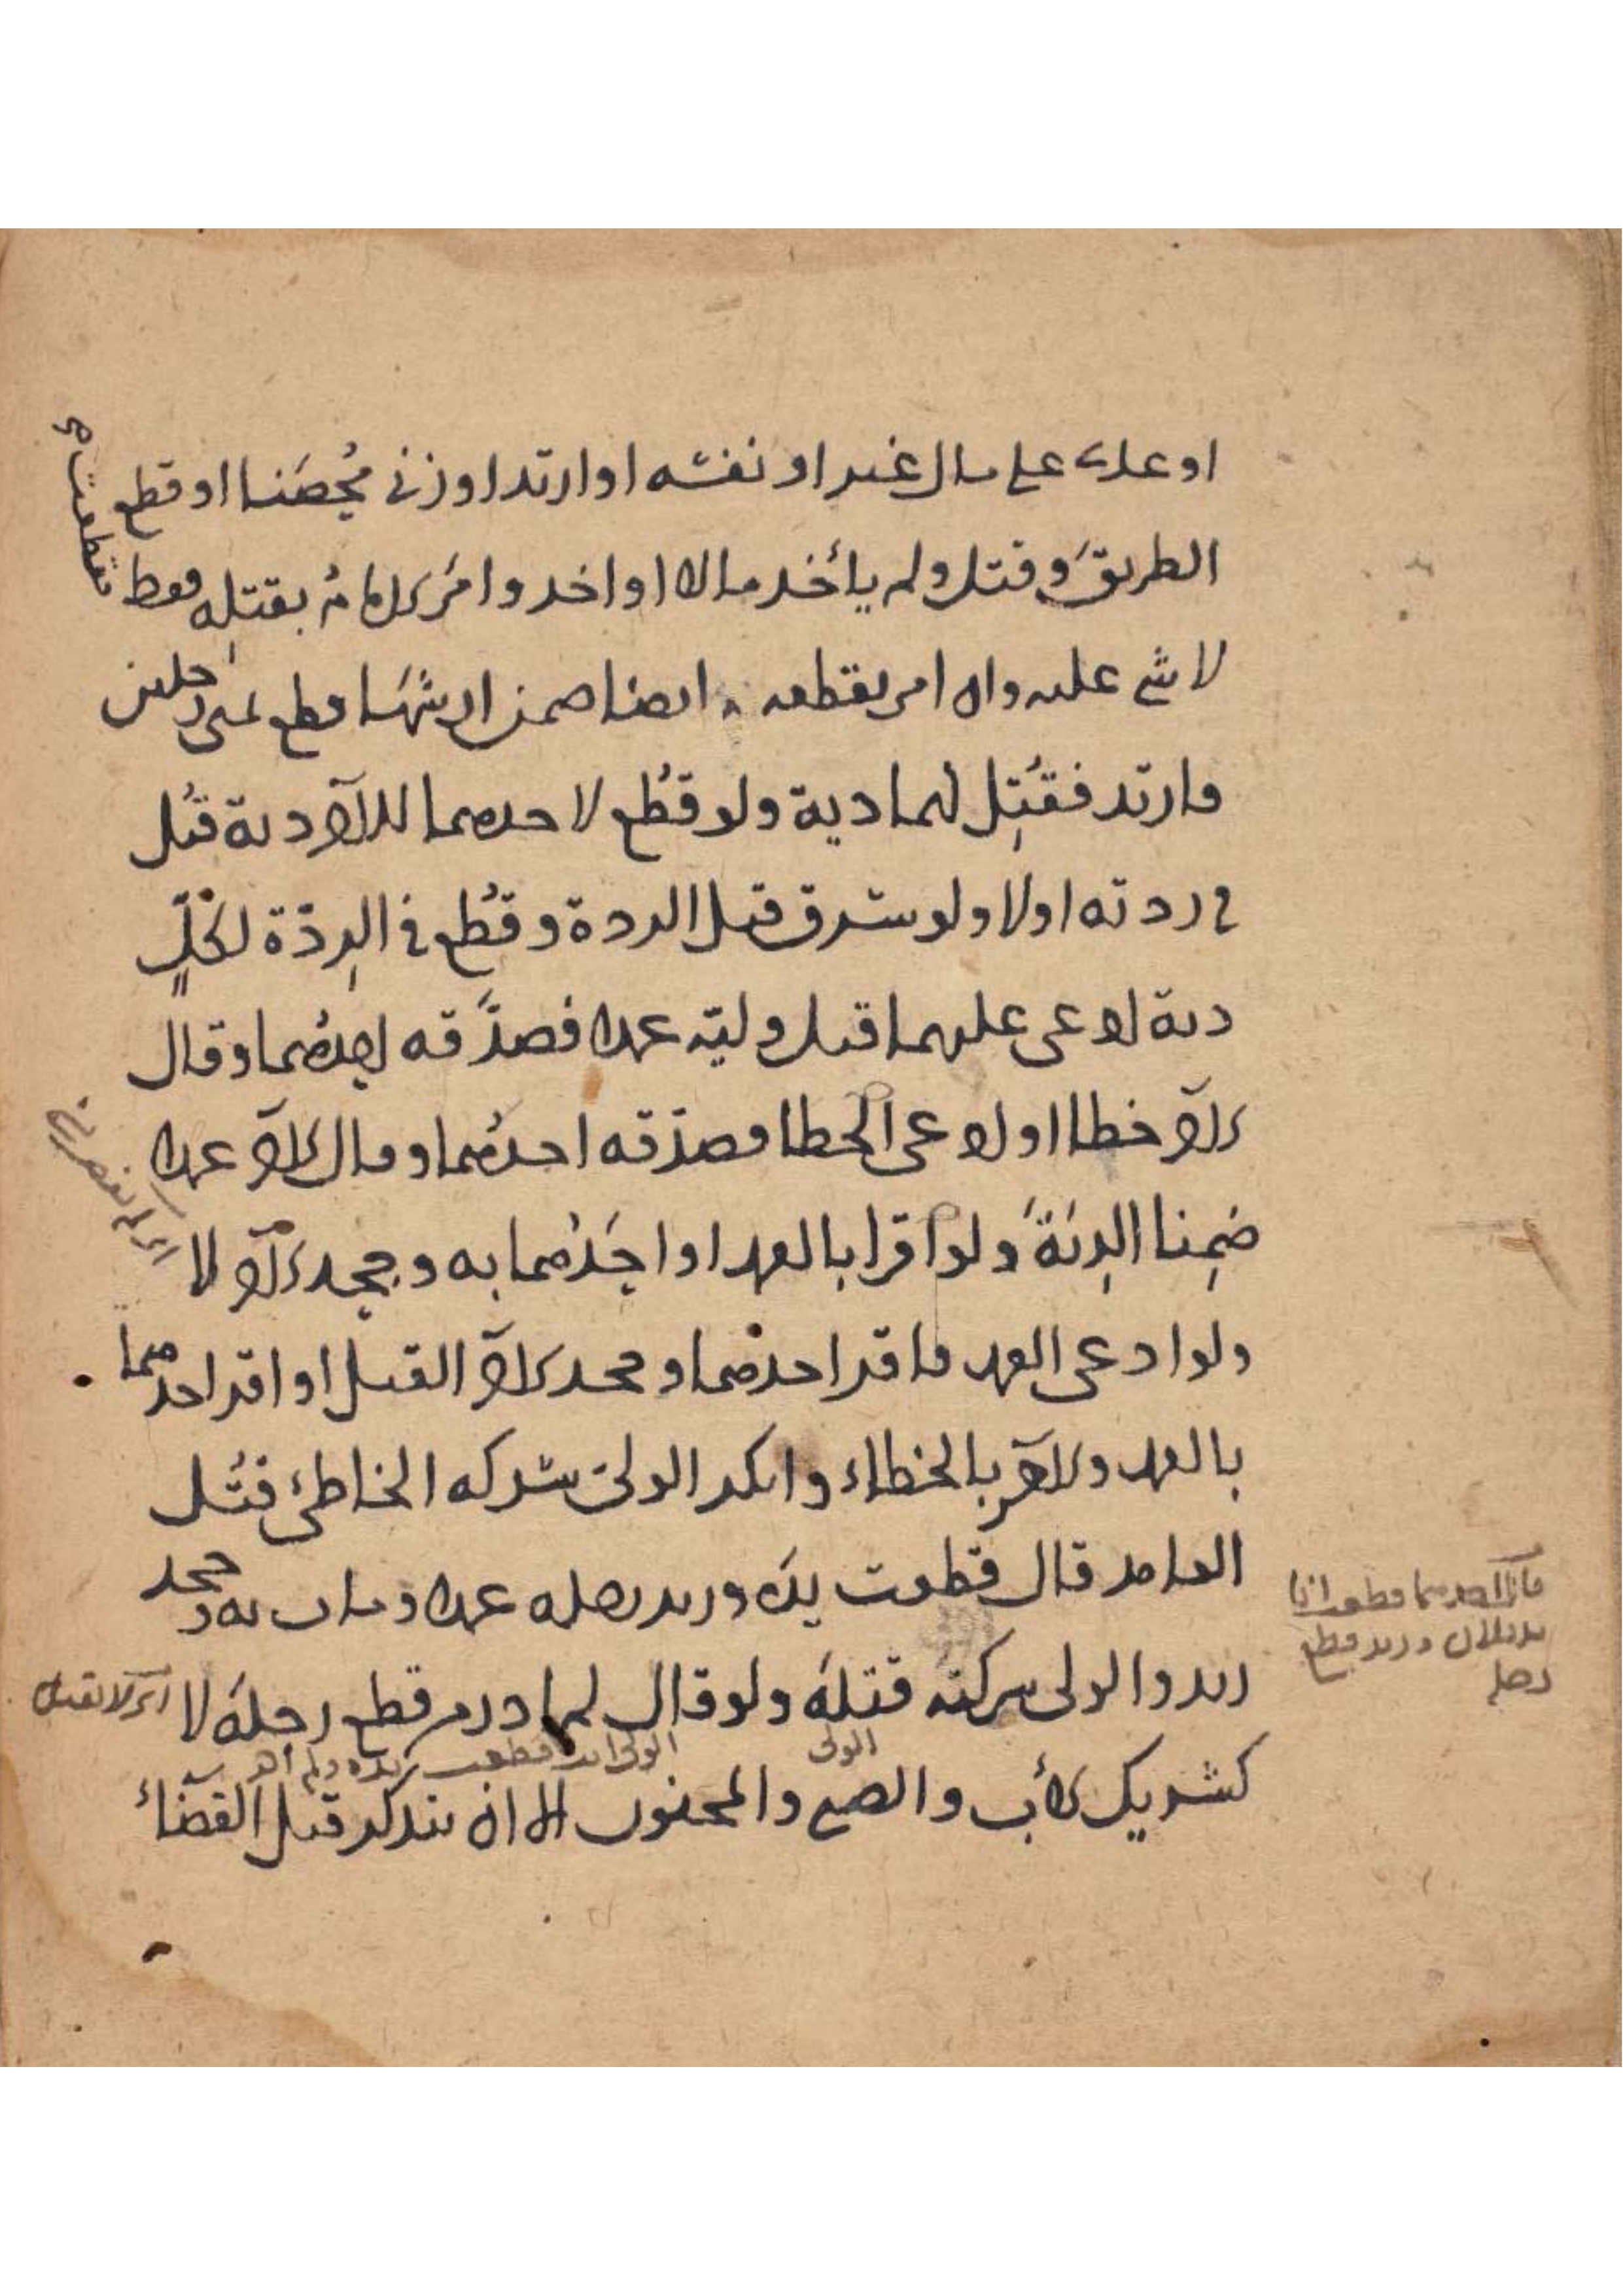 او على مال غير او نفسه او ارتد او زنى مُحصَنا او قطع
الطريق وقتل ولم يأخذ مالا او اخذ وامَر الامام بقتله فقط
لا شي عليه وان امر بقطعه ايضا ضمن ارشها قطع يمنى رجلين
فارتد فقُتِل لهما دية ولو قُطع لاحدهما للآخر دية قُتل
في ردته اولا ولو سرق قبل الردة وقُطع في الردّة لكلٍّ
دية ادعى عليهما قتل وليّه عمدا فصدَّقه احدُهما وقال
الآخر خطأ او ادعى الخطا فصدّقه احدُهما وقال الآخر عمدا
ضمِنا الدِيَةَ ولو اقرا بالعمد او احَدُهما به وجحد الآخر لا
ولو ادعى العمد فاقر احدهما وجحد الآخر القتل او اقر احدهما
بالعمد والآخر بالخطاء وانكر الولي شركه الخاطئ قُتل
العامد قال قطعت يدَه وزيد رجله عمدا ومات به وجحد
زيد والولي شركته قتلَه ولو قال لم ادر من قطع رجلَه لا
كشريك الأب والصبي والمجنون الا ان يتذكر قبل القضاء
الولي
الولي انت قطعت يده ولم
فقطعت
فان قال احدهما قطعت انا
يد فلان وزيد قطع
رجله